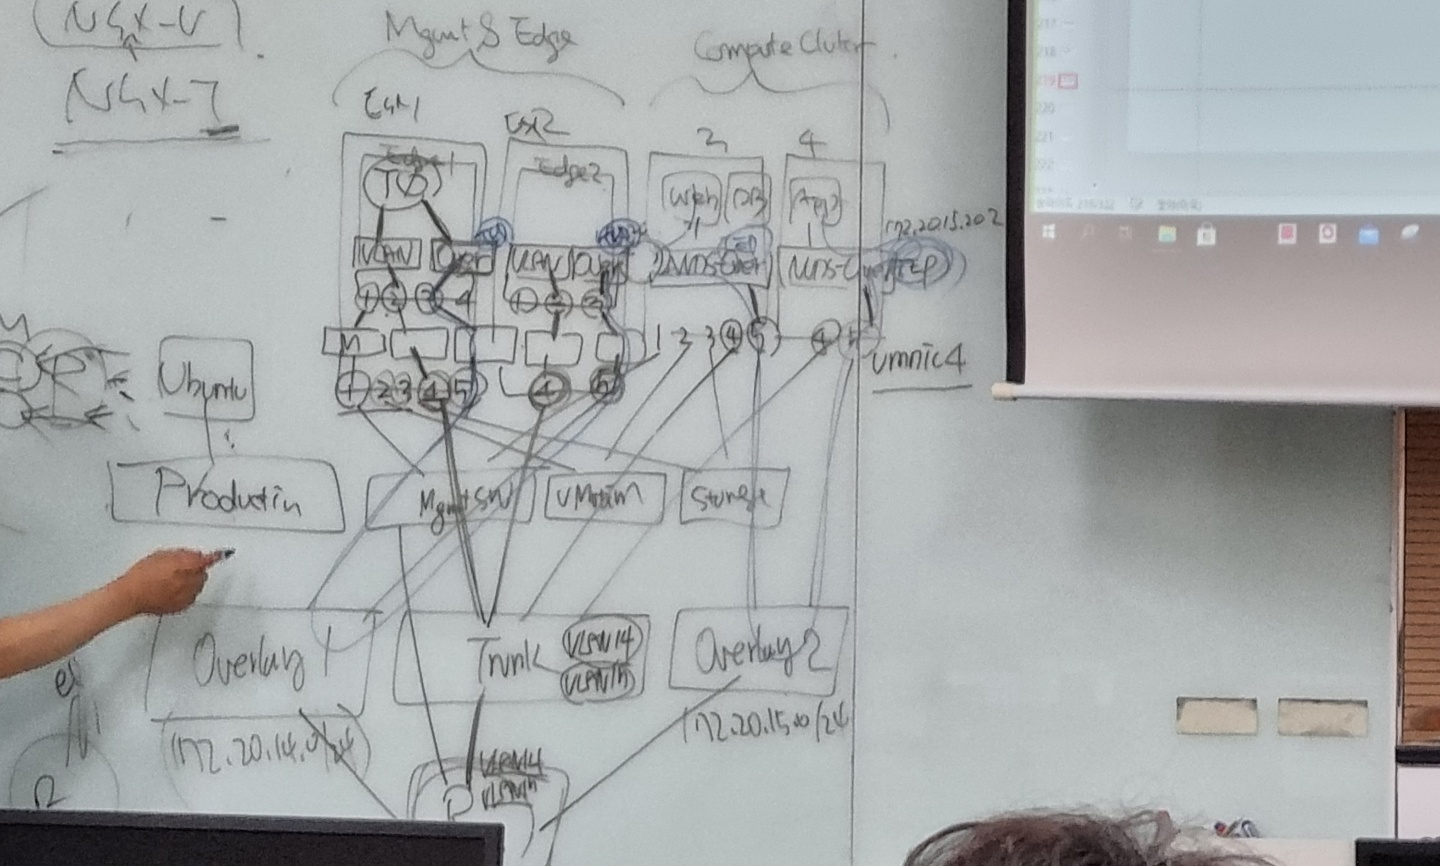 NSX-V
NSX-T
Mgmt & Edge
Compute Cluter
ESX1
ESX2
3
4
Edge1
Edge2
T0
Web
DB
App
172.20.15.202
VLAN
Over
VLAN
Over
NVDS-Over
NVDS-Over
TEP
1 2 3 4
1 2 3
1 2 3 4 5
4 5
vmnic4
M
1 2 3 4 5
4 5
Ubuntu
Production
Mgmt SW
vMotion
Storage
Overlay 1
Trunk
VLAN14
VLAN15
Overlay 2
172.20.14.0/24
172.20.15.0/24
VLAN14
VLAN15
218
219
220
221
222